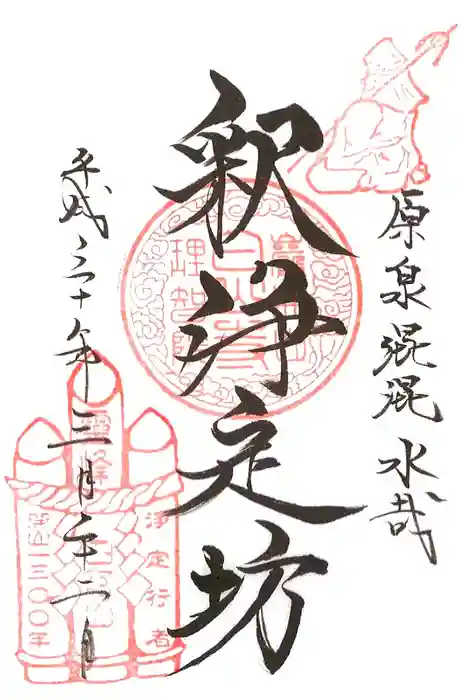 原泉混混 水哉
釈浄定坊
平成三十年三月二十二日
浄定行者
霊峰白山
開山一三〇〇年